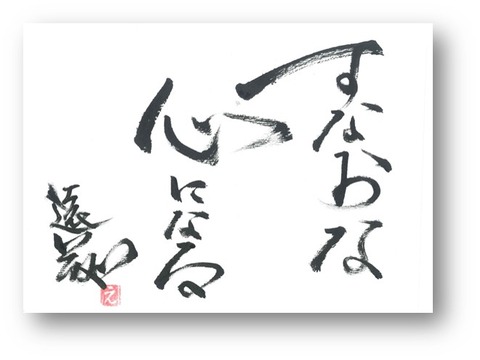 すなおな
心になる
え